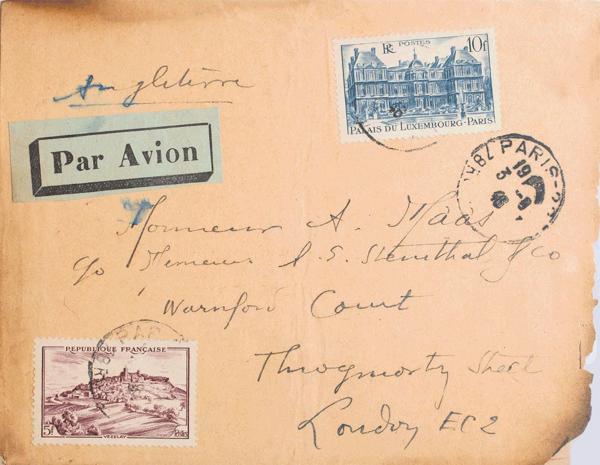 RF POSTES 10f
PALAIS DU LUXEMBOURG-PARIS
Angleterre
Par Avion
PARIS-
19
3 -9
46
Monsieur A. Maas
c/o Messieurs L. S. Steinthal & Co
Warnford Court
Throgmorty Street
London EC2
REPUBLIQUE FRANÇAISE
5f VEZELAY
PAR